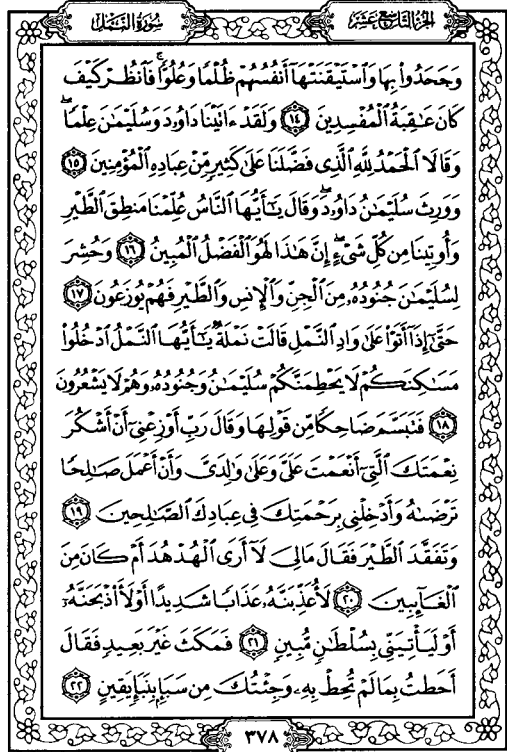 سُورَةُ النَّمْلِ
الجُزْءُ التَّاسِعَ عَشَرَ
وَجَحَدُوا۟ بِهَا وَٱسْتَيْقَنَتْهَآ أَنفُسُهُمْ ظُلْمًا وَعُلُوًّا ۚ فَٱنظُرْ كَيْفَ
كَانَ عَـٰقِبَةُ ٱلْمُفْسِدِينَ ١٤ وَلَقَدْ ءَاتَيْنَا دَاوُۥدَ وَسُلَيْمَـٰنَ عِلْمًا ۖ
وَقَالَا ٱلْحَمْدُ لِلَّهِ ٱلَّذِى فَضَّلَنَا عَلَىٰ كَثِيرٍ مِّنْ عِبَادِهِ ٱلْمُؤْمِنِينَ ١٥
وَوَرِثَ سُلَيْمَـٰنُ دَاوُۥدَ ۖ وَقَالَ يَـٰٓأَيُّهَا ٱلنَّاسُ عُلِّمْنَا مَنطِقَ ٱلطَّيْرِ
وَأُوتِينَا مِن كُلِّ شَىْءٍ ۖ إِنَّ هَـٰذَا لَهُوَ ٱلْفَضْلُ ٱلْمُبِينُ ١٦ وَحُشِرَ
لِسُلَيْمَـٰنَ جُنُودُهُۥ مِنَ ٱلْجِنِّ وَٱلْإِنسِ وَٱلطَّيْرِ فَهُمْ يُوزَعُونَ ١٧
حَتَّىٰٓ إِذَآ أَتَوْا۟ عَلَىٰ وَادِ ٱلنَّمْلِ قَالَتْ نَمْلَةٌ يَـٰٓأَيُّهَا ٱلنَّمْلُ ٱدْخُلُوا۟
مَسَـٰكِنَكُمْ لَا يَحْطِمَنَّكُمْ سُلَيْمَـٰنُ وَجُنُودُهُۥ وَهُمْ لَا يَشْعُرُونَ
١٨ فَتَبَسَّمَ ضَاحِكًا مِّن قَوْلِهَا وَقَالَ رَبِّ أَوْزِعْنِىٓ أَنْ أَشْكُرَ
نِعْمَتَكَ ٱلَّتِىٓ أَنْعَمْتَ عَلَىَّ وَعَلَىٰ وَٰلِدَىَّ وَأَنْ أَعْمَلَ صَـٰلِحًا
تَرْضَىٰهُ وَأَدْخِلْنِى بِرَحْمَتِكَ فِى عِبَادِكَ ٱلصَّـٰلِحِينَ ١٩
وَتَفَقَّدَ ٱلطَّيْرَ فَقَالَ مَالِىَ لَآ أَرَى ٱلْهُدْهُدَ أَمْ كَانَ مِنَ
ٱلْغَآئِبِينَ ٢٠ لَأُعَذِّبَنَّهُۥ عَذَابًا شَدِيدًا أَوْ لَأَا۟ذْبَحَنَّهُۥٓ
أَوْ لَيَأْتِيَنِّى بِسُلْطَـٰنٍ مُّبِينٍ ٢١ فَمَكَثَ غَيْرَ بَعِيدٍ فَقَالَ
أَحَطتُ بِمَا لَمْ تُحِطْ بِهِۦ وَجِئْتُكَ مِن سَبَإٍۭ بِنَبَإٍ يَقِينٍ ٢٢
٣٧٨